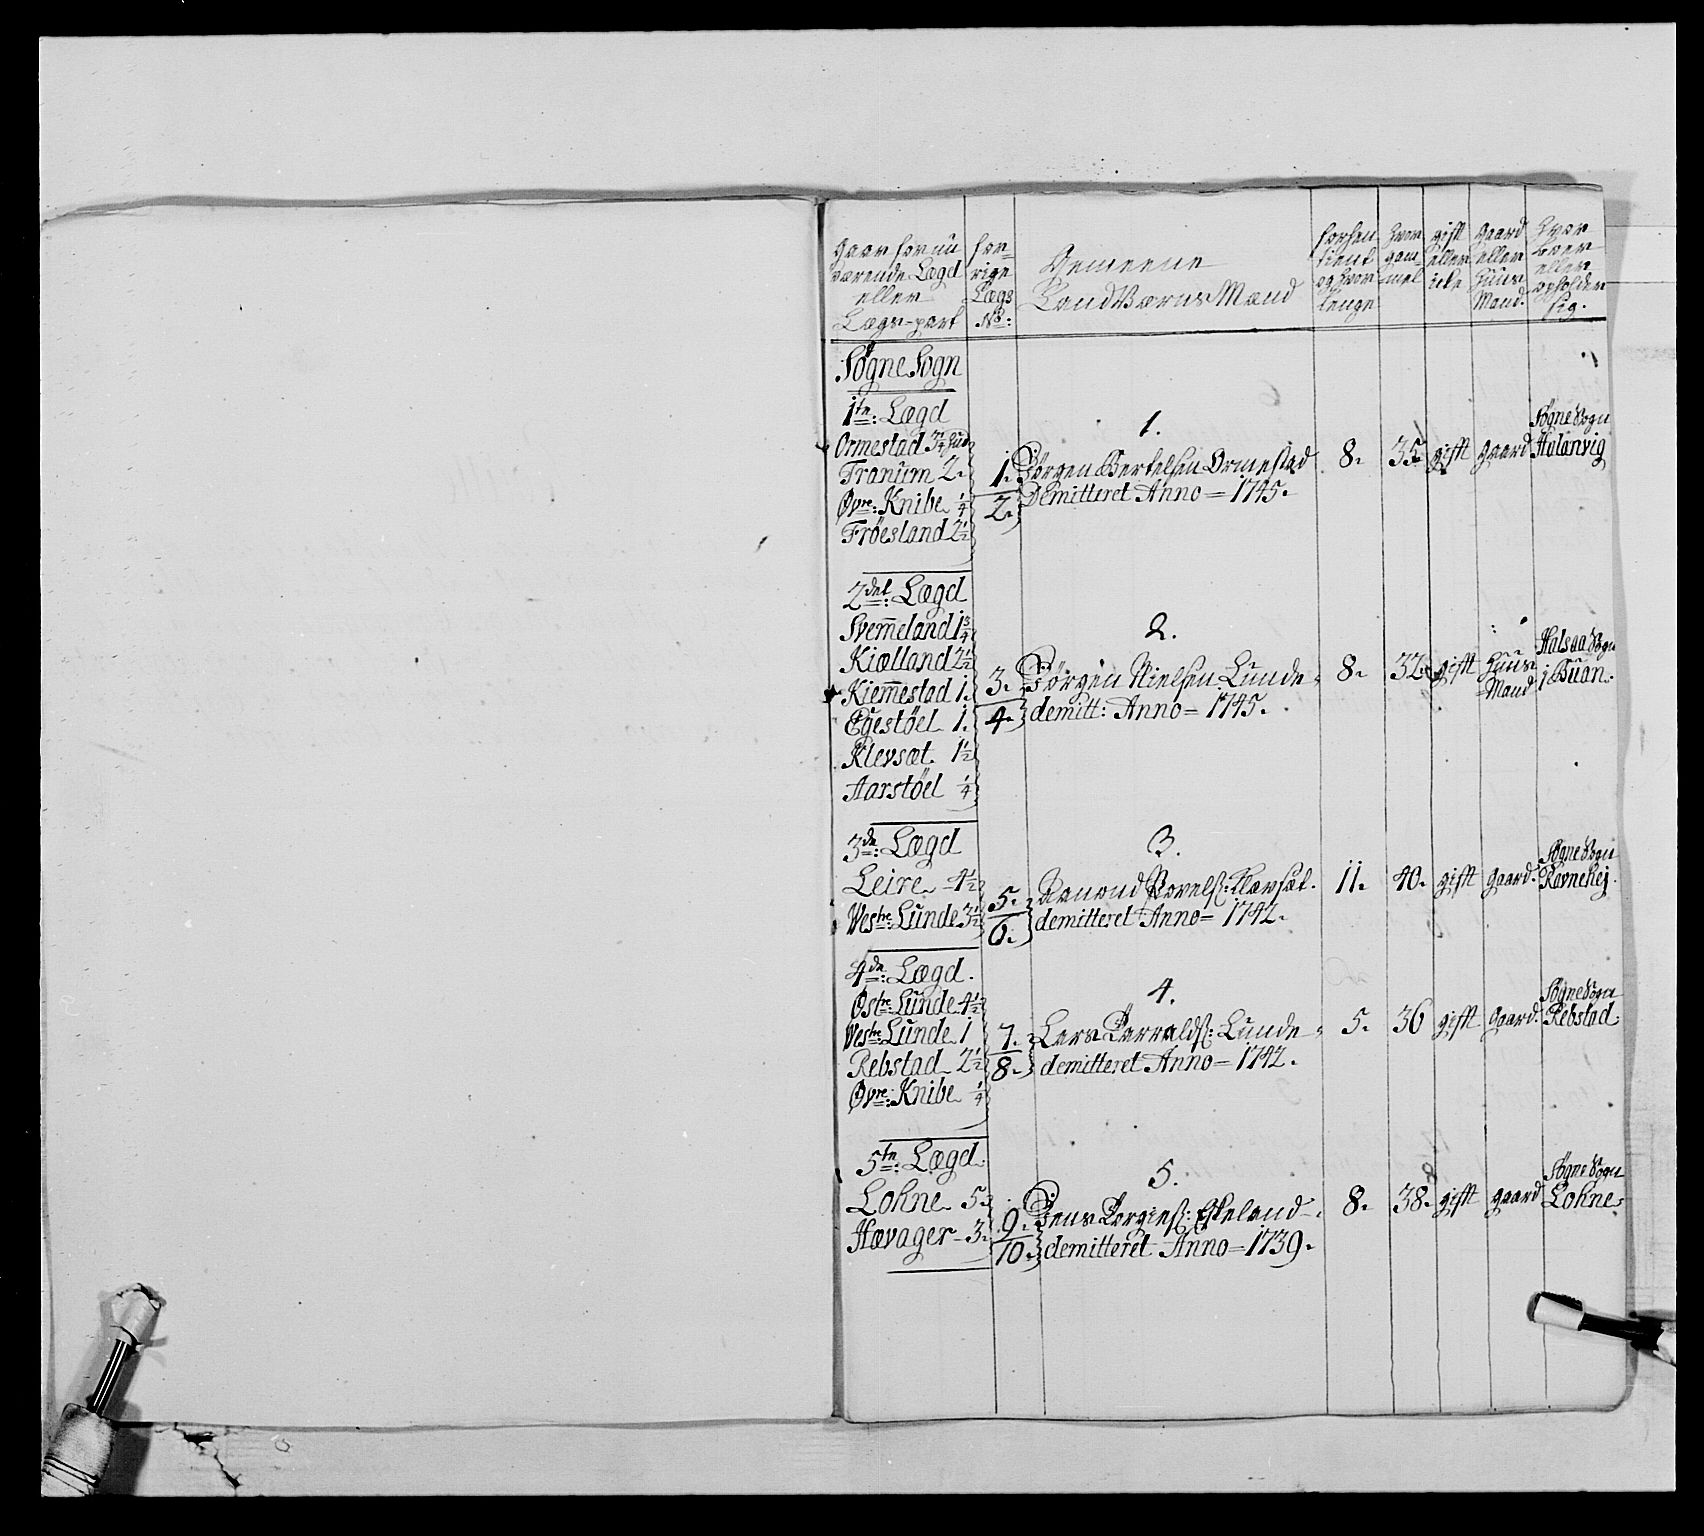 Gaar for nu
værende Lægd
eller
Lægs-part
for=
rige
Lægs
No:
Gemeene
LandVærns Mænd
forhen
tient
og hvor
lenge
hvor
gam=
mel
gift
eller
icke
Gaard
eller
Huus
Mand.
Hvor
boer
eller
opholder
sig.
Søgne Sogn
1te: Lægd
Ormestad 3¼ hud
Tranum 2.
Øvre: Knibe ¼
Frøesland 2½
1.
2.
1.
Jørgen Bertelsen Ormestad
Demitteret Anno= 1745.
8.
35.
gifft
gaard
Søgne Sogn
Holenvig
2det: Lægd
Svem̄eland 1¾
Kiælland 2½
Kiem̄estad 1.
Egestøel 1.
Klevsæt 1½
Aarstøel ¼
3.
4.
2.
Jørgen Nielsen Lunde
demitt: Anno= 1745.
8.
32.
gifft
Huus
Mand
Halsaa Sogn
i Buan.
3de: Lægd
Leire 4½
Vestre: Lunde 3½
5.
6.
3.
Povels: Klævsæt.
demitteret Anno= 1742.
11.
40.
gifft
gaard.
Søgne Sogn
Ravnehej
4de: Lægd.
Østre: Lunde 4½
Vestre: Lunde 1
Rebstad 2½
Øvre: Knibe ¼
7.
8.
4.
Lars Tarralds: Lunde
demitteret Anno= 1742.
5.
36
gifft
gaard.
Søgne Sogn
Rebstad.
5te: Lægd.
Lohne 5
Hævager 3.
9.
10.
5.
Jens Torgies: Espeland
demitteret Anno= 1739.
8.
38.
gifft
gaard
Søgne Sogn
Lohne